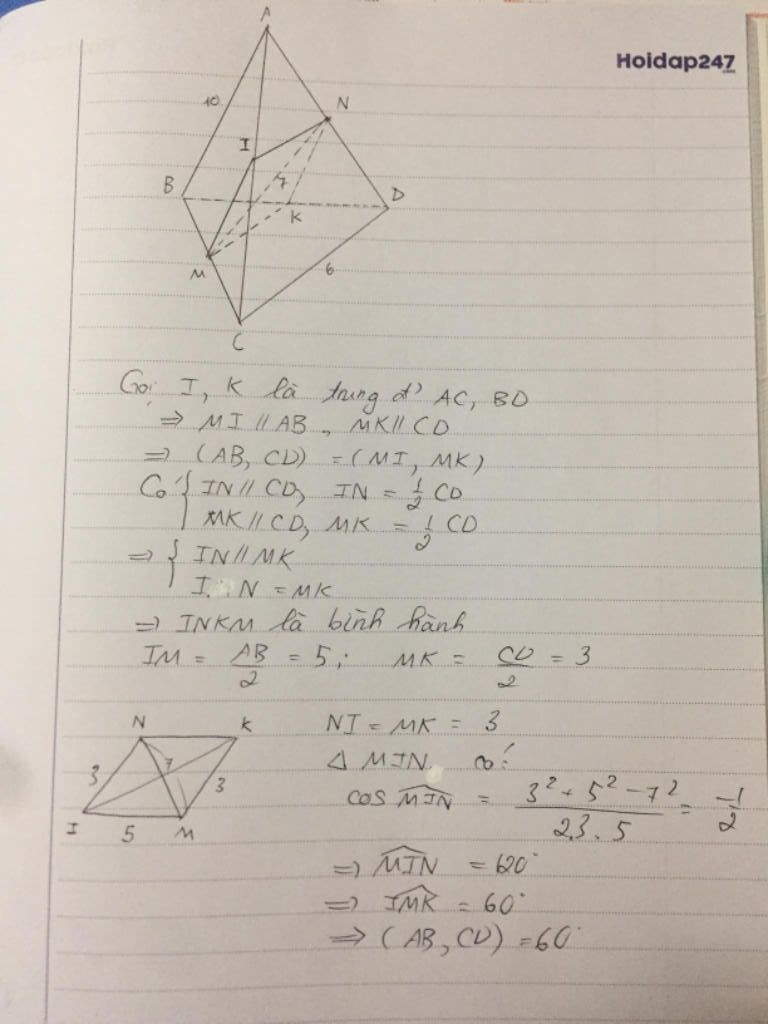 Hoidap247
.com
A
N
10
I
7
B
D
K
M
6
C
Gọi I, K là trung đ' AC, BD
⇒ MI // AB, MK // CD
⇒ (AB, CD) = (MI, MK)
Có { IN // CD, IN = 1/2 CD
MK // CD, MK = 1/2 CD
⇒ { IN // MK
IN = MK
⇒ INKM là bình hành
IM = AB/2 = 5; MK = CD/2 = 3
N K NI = MK = 3
7
3 3 Δ MIN có:
I 5 M cos MIN = (3² + 5² - 7²)/(2.3.5) = -1/2
⇒ MIN = 120°
⇒ IMK = 60°
⇒ (AB, CD) = 60°